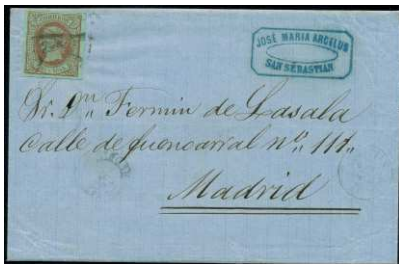 JOSÉ MARIA ARCELUS
SAN SEBASTIAN
Sr. Dn. Fermin de Lasala
Calle de fuencarral no. 111.
Madrid